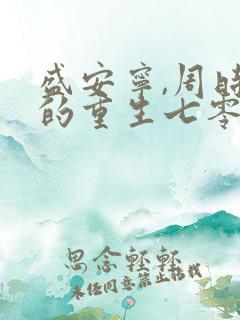 盛安宁,周时
的重生七零
思念轻轻
未经同意禁止转载